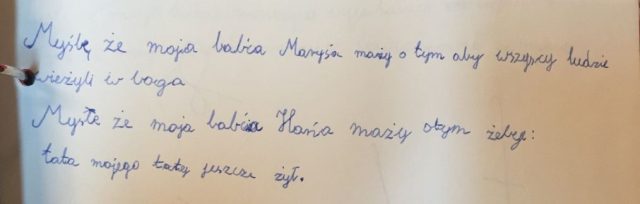 Myślę że moja babca Marysia maży o tym aby wszyscy ludzie
wieżyli w boga
Myśle że moja babcia Hania maży otym żeby:
tata mojego taty jeszcze żył.